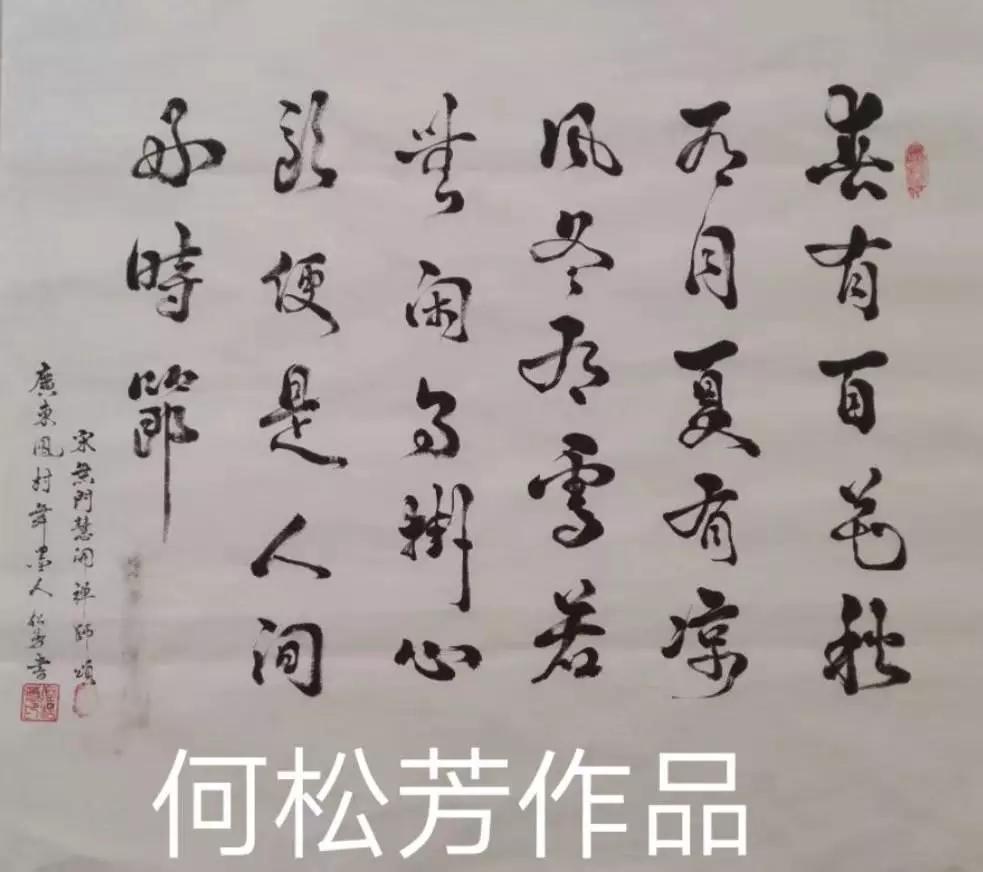 春有百花秋
有月夏有涼
風冬有雪若
無閑事掛心
頭便是人間
好時節
宋無門慧開禪師頌
廣東鳳村舞墨人松芳書
何松芳作品